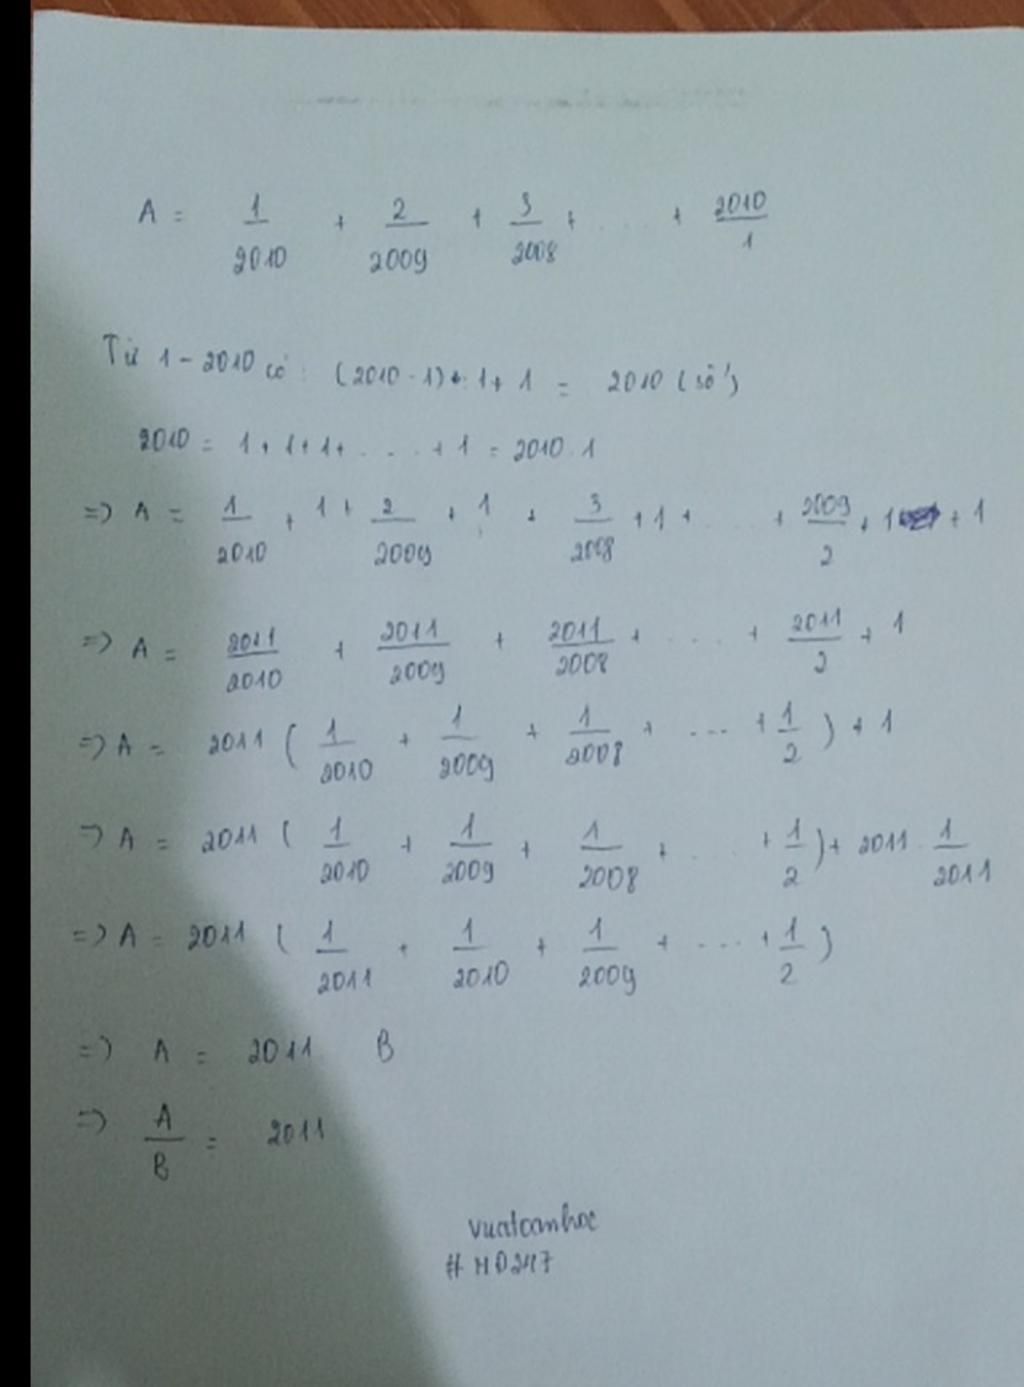 A = 1/2010 + 2/2009 + 3/2008 + .... + 2010/1
Từ 1 - 2010 có : (2010 - 1) : 1 + 1 = 2010 (số)
2010 = 1 + 1 + 1 + .... + 1 = 2010 . 1
=> A = 1/2010 + 1 + 2/2009 + 1 + 3/2008 + 1 + .... + 2009/2 + 1 + 1
=> A = 2011/2010 + 2011/2009 + 2011/2008 + .... + 2011/2 + 1
=> A = 2011 ( 1/2010 + 1/2009 + 1/2008 + .... + 1/2 ) + 1
=> A = 2011 ( 1/2010 + 1/2009 + 1/2008 + .... + 1/2 ) + 2011 . 1/2011
=> A = 2011 ( 1/2011 + 1/2010 + 1/2009 + .... + 1/2 )
=> A = 2011 B
=> A/B = 2011
vuatoanhoc